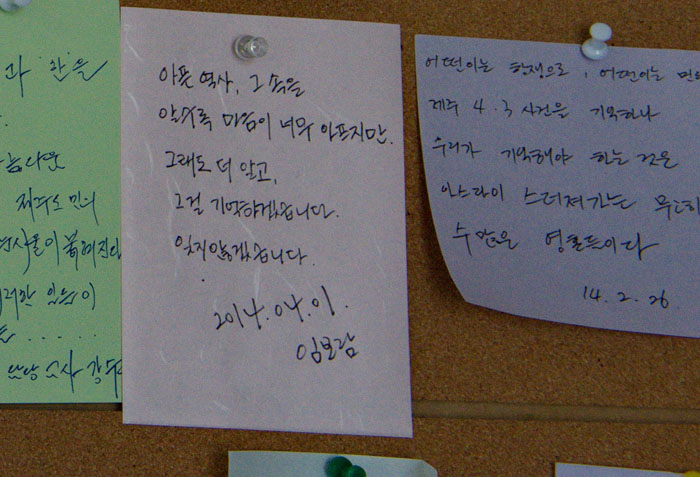 과 한을
제주도민의
아픈 역사, 그 속을
알수록 마음이 너무 아프지만.
그래도 더 알고,
그걸 기억하겠습니다.
잊지않겠습니다.
2014.04.01.
임보람
어떤이는 항쟁으로, 어떤이는
제주 4.3 사건을 기억하나
우리가 기억해야 하는 것은
아스라이 스러져가는 무고한
수많은 영혼들이다
14.2.26